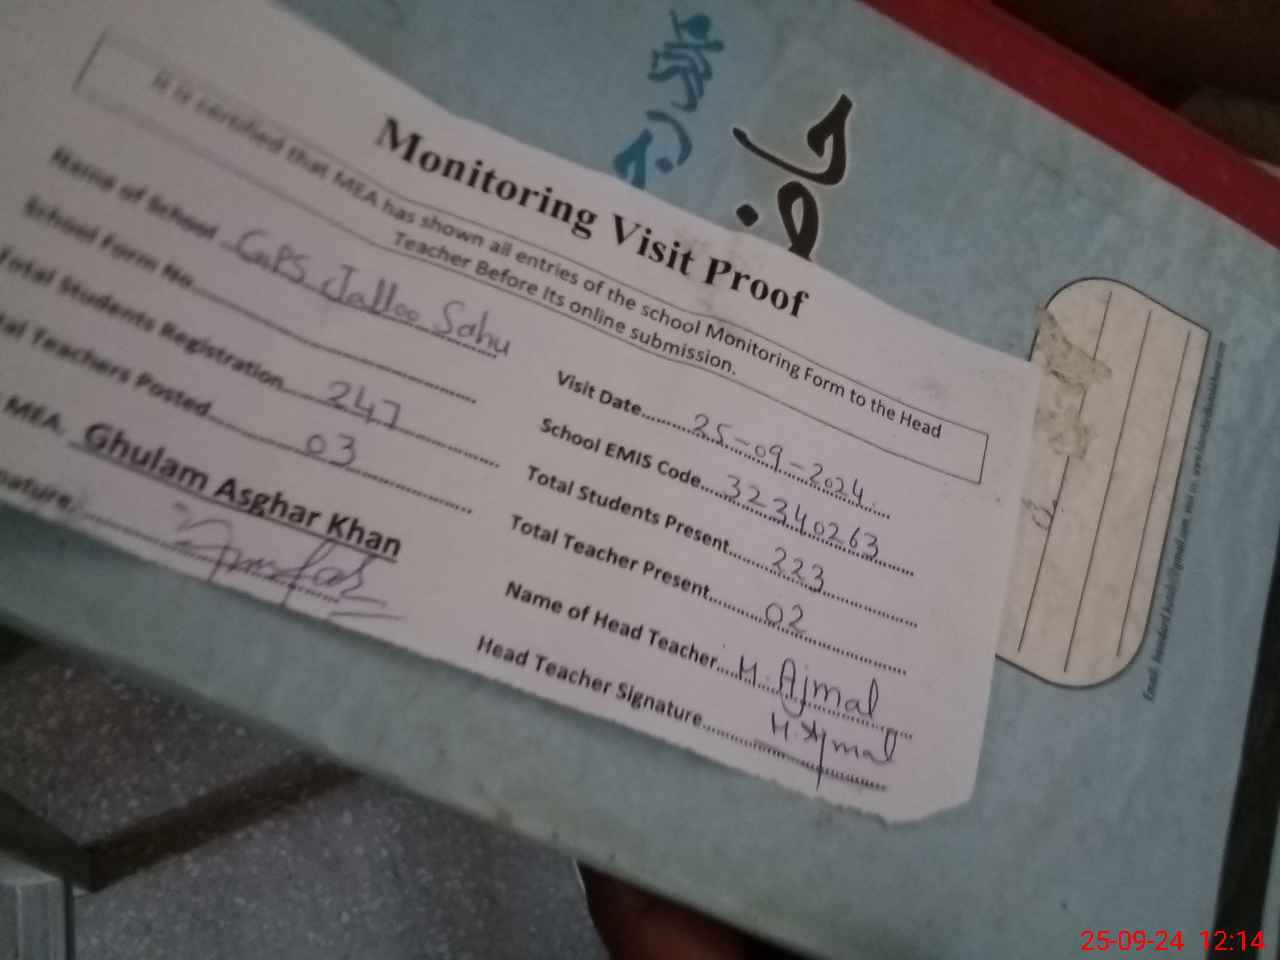 حاضر
Monitoring Visit Proof
It is certified that MEA has shown all entries of the school Monitoring Form to the Head
Teacher Before Its online submission.
Name of School GPS Jalloo Sahu
School Form No
Total Students Registration 247
Teachers Posted 03
MEA. Ghulam Asghar Khan
Visit Date 25-09-2024
School EMIS Code 32340263
Total Students Present 223
Total Teacher Present 02
Name of Head Teacher M. Ajmal
Head Teacher Signature M. Ajmal
25-09-24 12:14